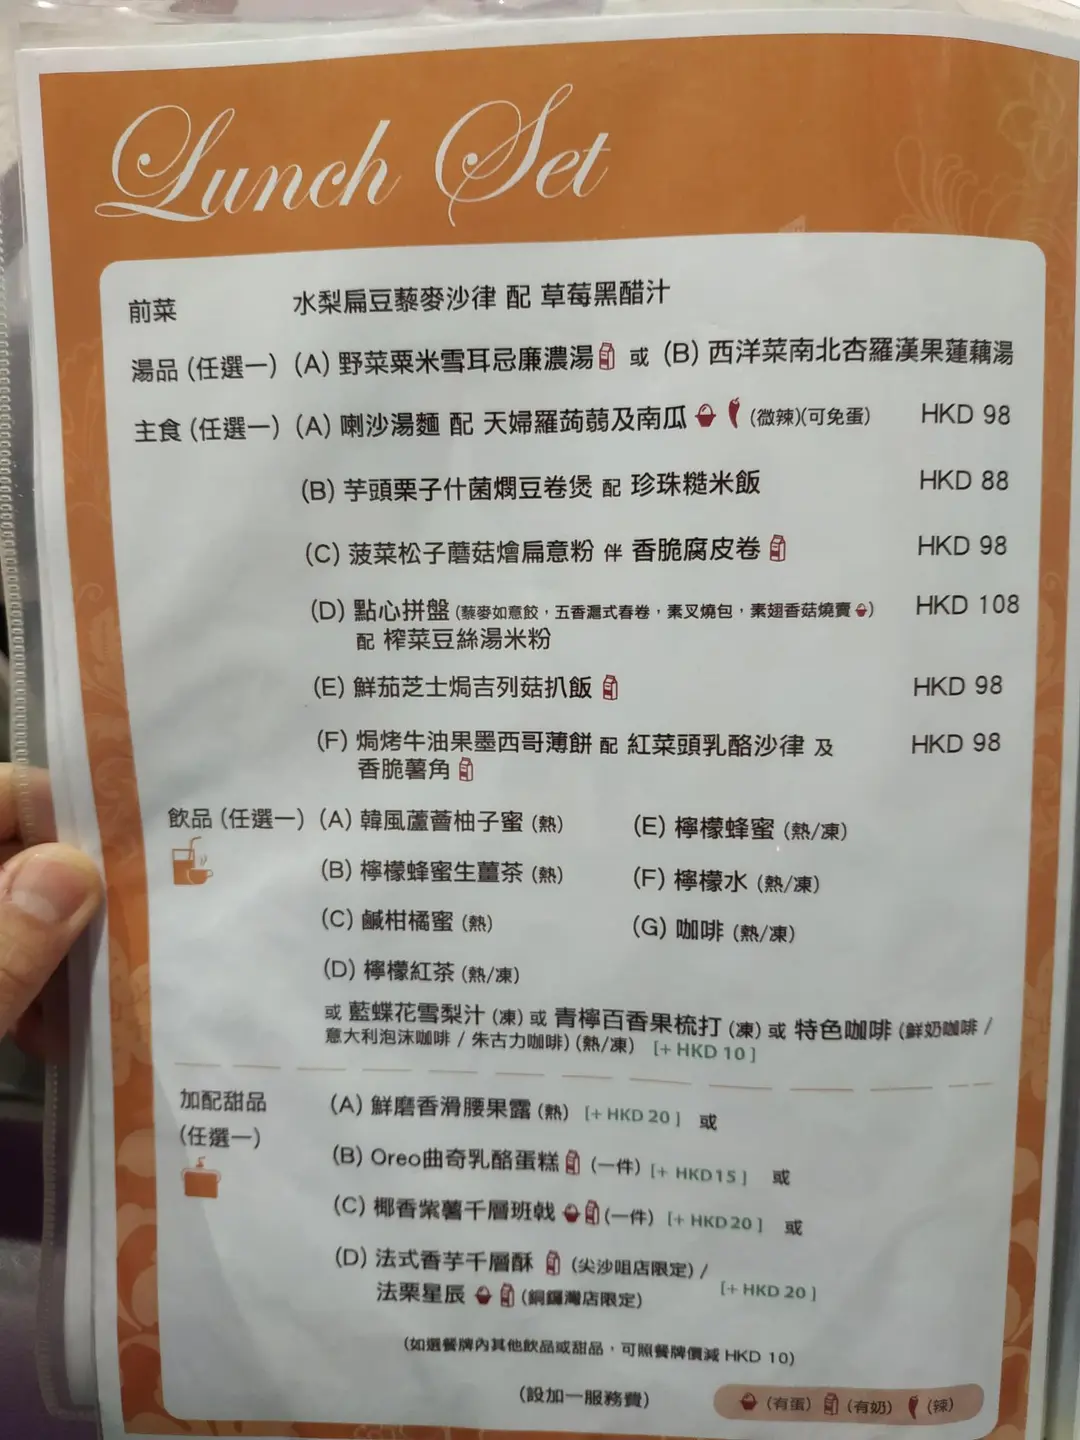 Lunch Set
前菜 水梨扁豆藜麥沙律 配 草莓黑醋汁
湯品 (任選一) (A) 野菜粟米雪耳忌廉濃湯 或 (B) 西洋菜南北杏羅漢果蓮藕湯
主食 (任選一) (A) 喇沙湯麵 配 天婦羅蒟蒻及南瓜 (微辣)(可免蛋) HKD 98
(B) 芋頭栗子什菌燜豆卷煲 配 珍珠糙米飯 HKD 88
(C) 菠菜松子蘑菇燴扁意粉 伴 香脆腐皮卷 HKD 98
(D) 點心拼盤 (藜麥如意餃，五香滬式春卷，素叉燒包，素翅香菇燒賣) HKD 108
配 榨菜豆絲湯米粉
(E) 鮮茄芝士焗吉列菇扒飯 HKD 98
(F) 焗烤牛油果墨西哥薄餅 配 紅菜頭乳酪沙律 及 HKD 98
香脆薯角
飲品 (任選一) (A) 韓風蘆薈柚子蜜 (熱) (E) 檸檬蜂蜜 (熱/凍)
(B) 檸檬蜂蜜生薑茶 (熱) (F) 檸檬水 (熱/凍)
(C) 鹹柑橘蜜 (熱) (G) 咖啡 (熱/凍)
(D) 檸檬紅茶 (熱/凍)
或 藍蝶花雪梨汁 (凍) 或 青檸百香果梳打 (凍) 或 特色咖啡 (鮮奶咖啡 /
意大利泡沫咖啡 / 朱古力咖啡) (熱/凍) [+ HKD 10]
加配甜品 (A) 鮮磨香滑腰果露 (熱) [+ HKD 20] 或
(任選一) (B) Oreo曲奇乳酪蛋糕 (一件) [+ HKD15] 或
(C) 椰香紫薯千層班戟 (一件) [+ HKD20] 或
(D) 法式香芋千層酥 (尖沙咀店限定) /
法栗星辰 (銅鑼灣店限定) [+ HKD 20]
(如選餐牌內其他飲品或甜品，可照餐牌價減 HKD 10)
(設加一服務費) (有蛋) (有奶) (辣)